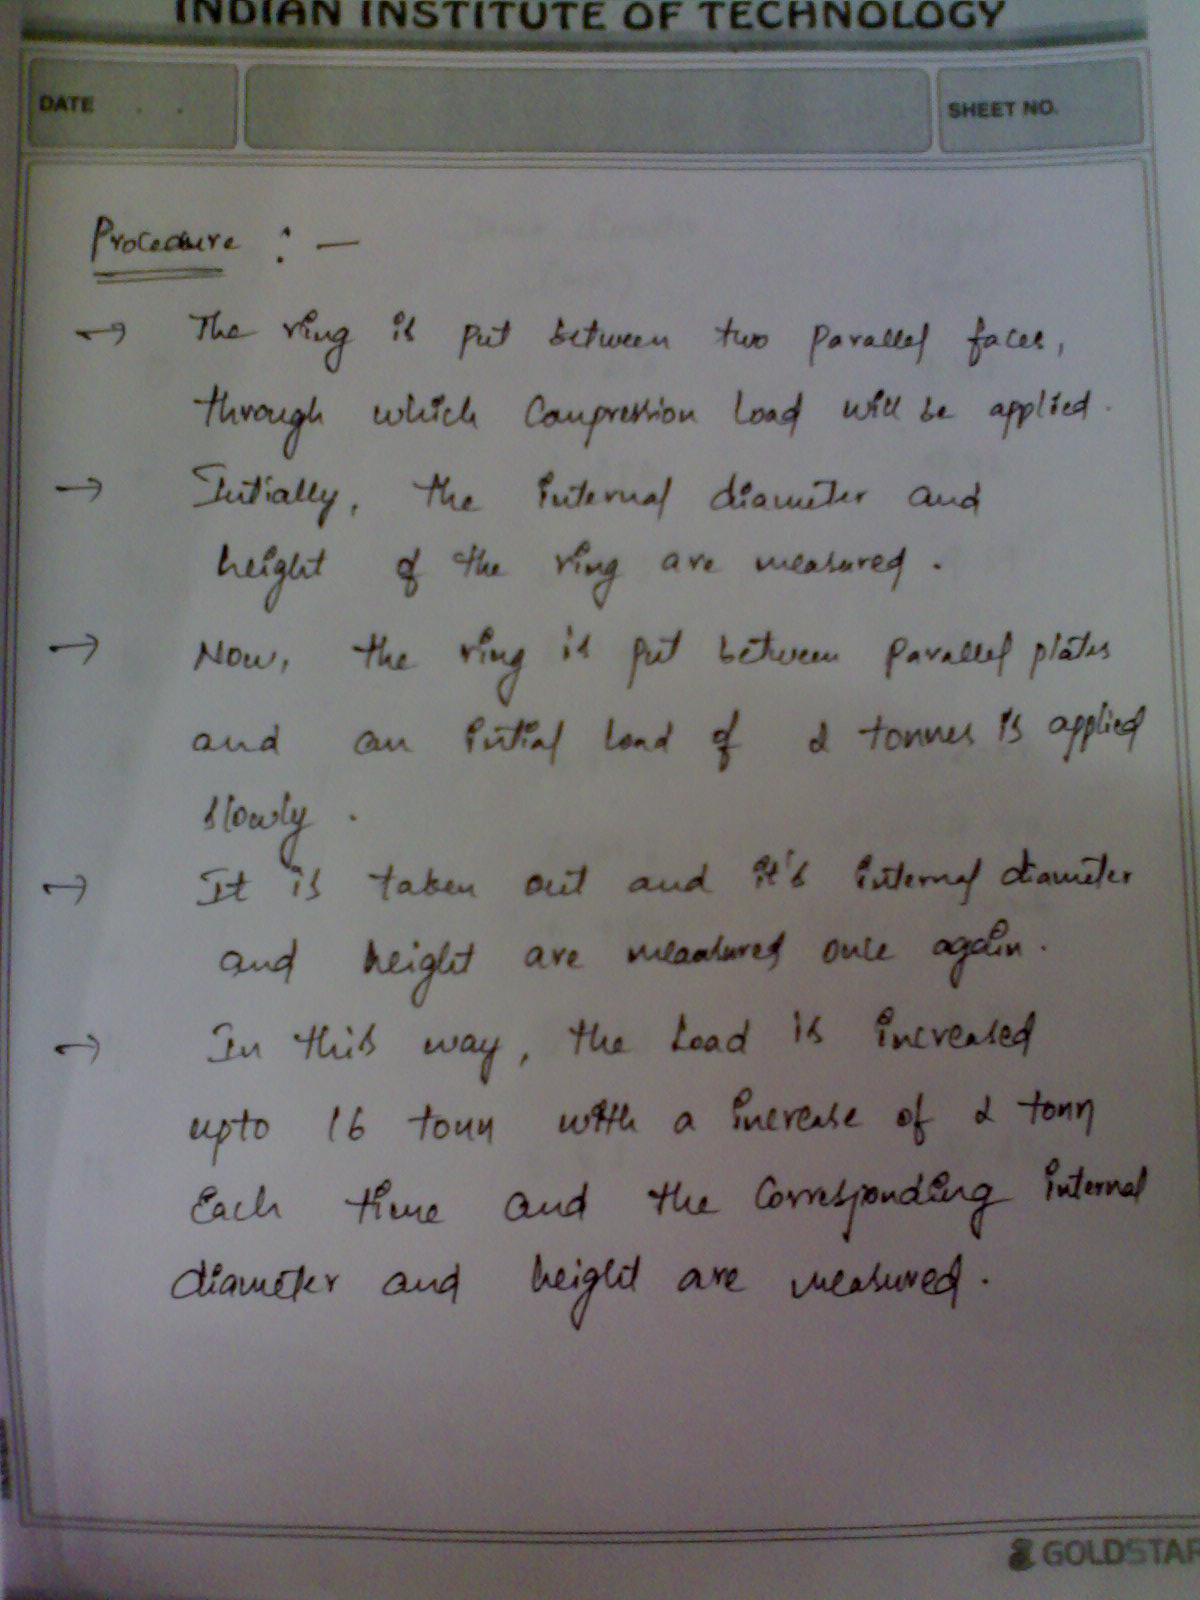 INDIAN INSTITUTE OF TECHNOLOGY
DATE
SHEET NO.
Procedure : —
→ The ring is put between two parallel faces,
through which Compression Load will be applied.
→ Initially, the internal diameter and
height of the ring are measured.
→ Now, the ring is put between parallel plates
and an intial load of 2 tonnes is applied
slowly.
→ It is taken out and it's internal diameter
and height are meaasured once again.
→ In this way, the Load is increased
upto 16 tonn with a increase of 2 tonn
Each time and the Corresponding internal
diameter and height are measured.
GOLDSTAR